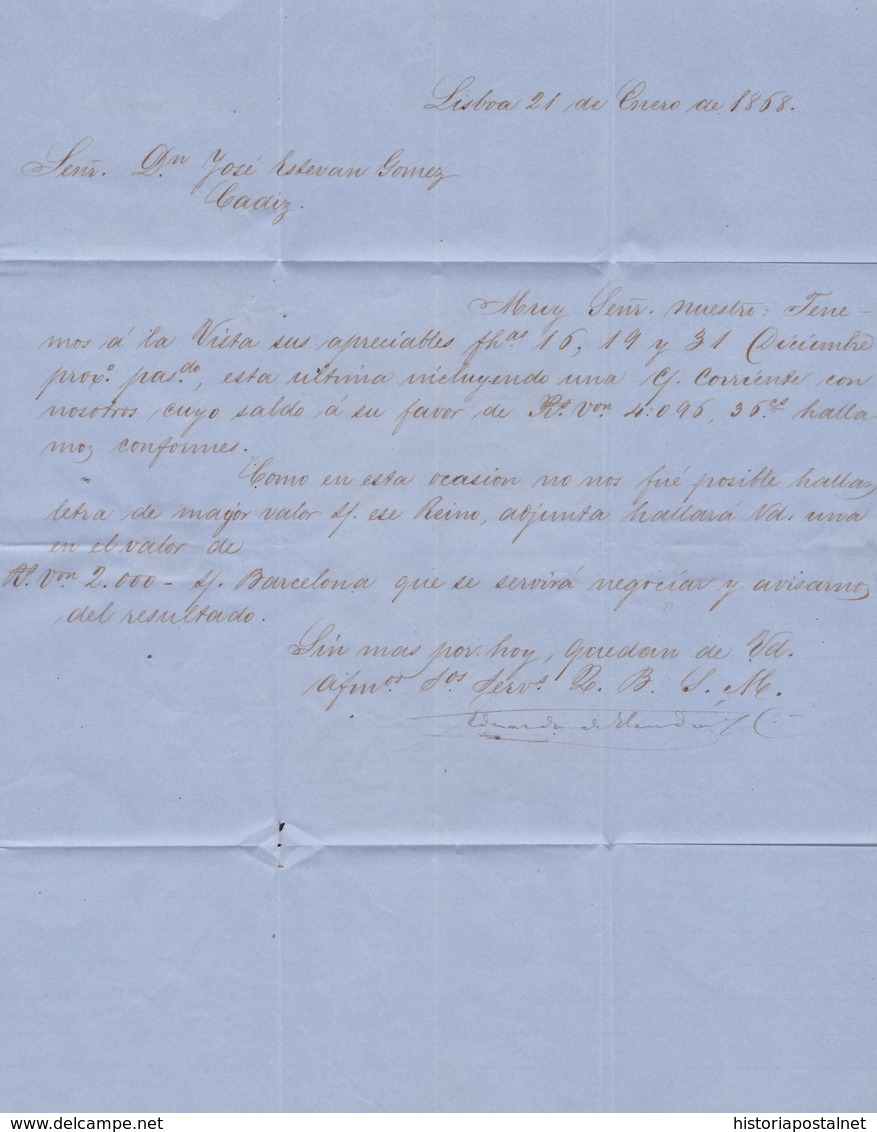 Lisboa 21 de Enero de 1868.
Señr. Dn José Estevan Gomez
Cadiz.
Muy Señr. nuestro: Tene-
mos á la Vista sus apreciables fhas 16, 19 y 31 Diciembre
proxo. pasdo, esta ultima incluyendo una C/. Corriente con
nosotros, cuyo saldo á su favor de Rs. Von. 4:096, 36cs halla-
mos conformes.
Como en esta ocasion no nos fué posible hallar
letra de mayor valor s/. ese Reino, adjunta hallara Vd. una
en el valor de
Rs. Von. 2.000 - s/. Barcelona que se servirá negociar y avisarnos
del resultado.
Sin mas por hoy, quedan de Vd.
afmos. Sos Servs. Q. B. S. M.
Eduardo de
www.delcampe.net
historiapostalnet